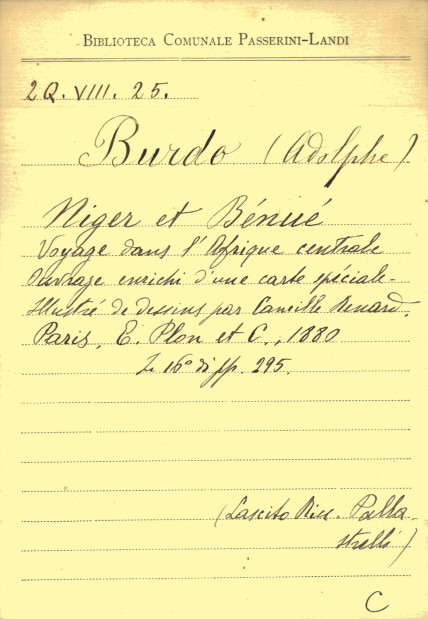 BIBLIOTECA COMUNALE PASSERINI-LANDI
2Q. VIII. 25.
Burdo (Adolphe)
Niger et Bénué
Voyage dans l'Afrique centrale
Ouvrage enrichi d'une carte spéciale-
Illustré de dessins par Camille Renard.
Paris, E. Plon et C., 1880
16° di pp. 295.
(Lascito Palla-
strelli)
C